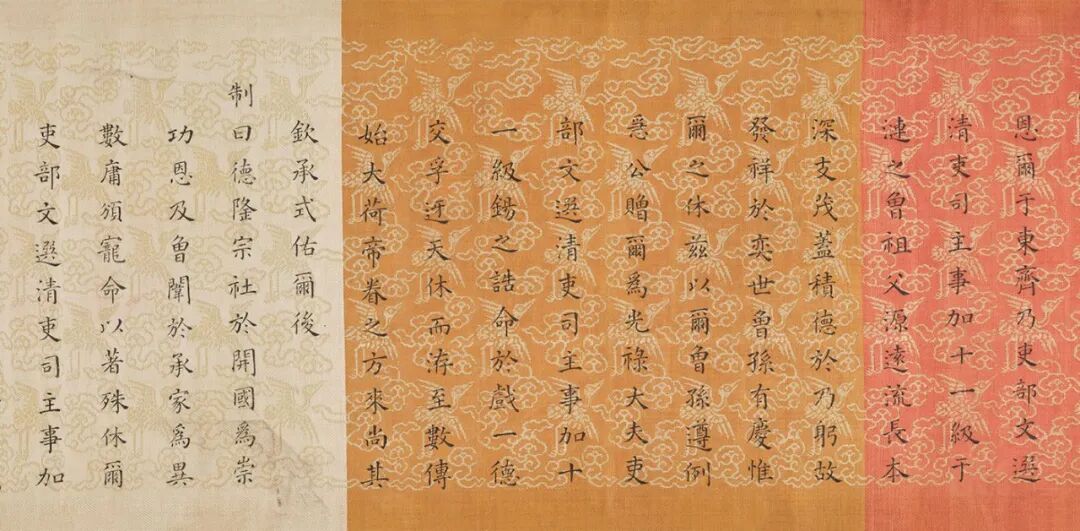 恩爾于東齊乃吏部文選
清吏司主事加十一級于
漣之曾祖父源遠流長本
深支茂蓋積德於乃躬故
發祥於奕世曾孫有慶惟
爾之休兹以爾曾孫遵例
急公贈爾爲光祿大夫吏
部文選清吏司主事加十
一級錫之誥命於戲一德
交孚迓天休而洊至數傳
始大荷帝眷之方來尚其
欽承式佑爾後
制曰德隆宗社於開國爲崇
功恩及曾闈於承家爲異
數庸頒寵命以著殊休爾
吏部文選清吏司主事加